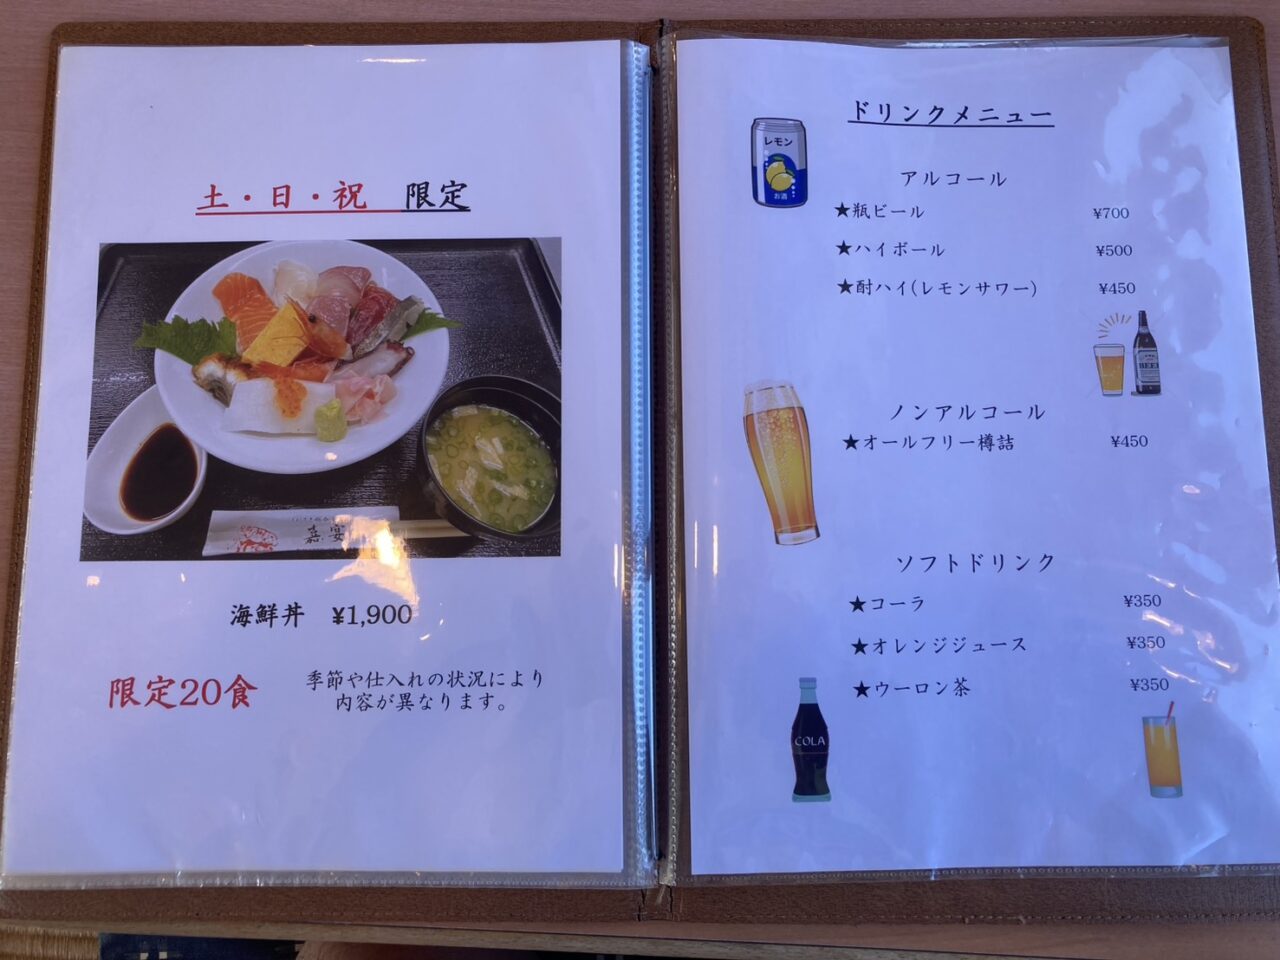 土・日・祝　限定
嘉宴
海鮮丼　¥1,900
限定20食
季節や仕入れの状況により
内容が異なります。
ドリンクメニュー
レモン
お酒
アルコール
★瓶ビール ¥700
★ハイボール ¥500
★酎ハイ(レモンサワー) ¥450
ノンアルコール
★オールフリー樽詰 ¥450
ソフトドリンク
★コーラ ¥350
★オレンジジュース ¥350
★ウーロン茶 ¥350
COLA